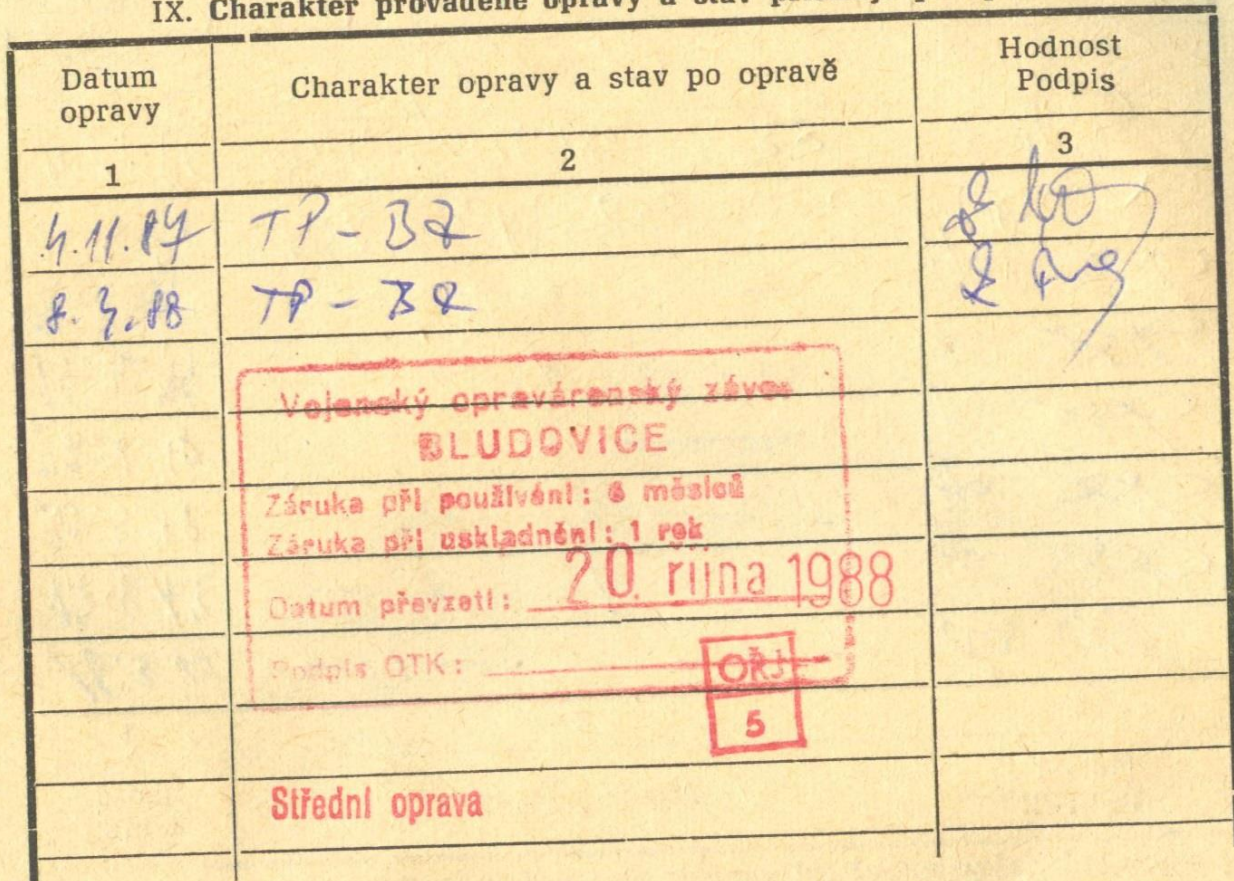 IX. Charakter prováděné opravy a stav
Datum opravy
Charakter opravy a stav po opravě
Hodnost Podpis
1
2
3
4.11.87 TP - BZ
8.4.88 TP - BZ
Vojenský opravárenský závod
BLUDOVICE
Záruka při používání: 6 měsíců
Záruka při uskladnění: 1 rok
Datum převzetí: 20. října 1988
Podpis OTK:
OŘJ
5
Střední oprava